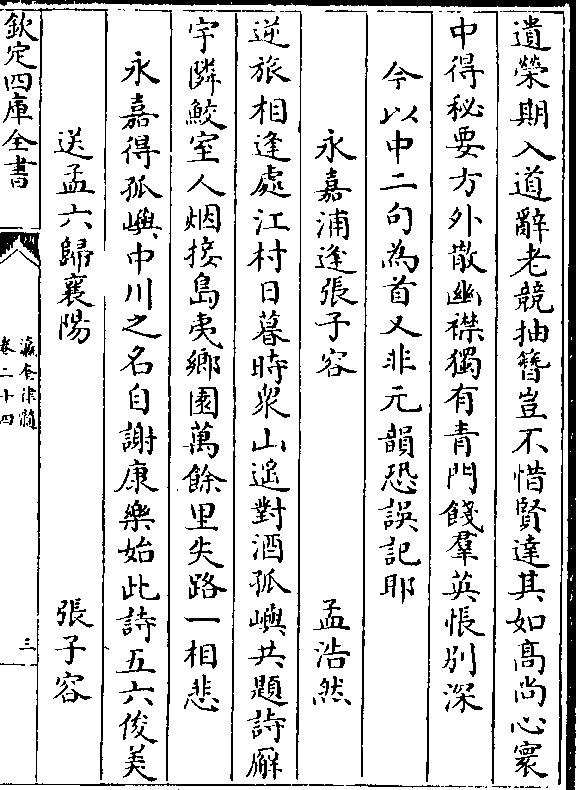 遺榮期入道辭老競抽簮豈不惜賢達其如髙尚心寰
中得秘要方外散幽襟獨有青門餞羣英悵别深
今以中二句為首又非元韻恐誤記耶
永嘉浦逢張子容 孟浩然
逆旅相逢處江村日暮時衆山遙對酒孤嶼共題詩廨
宇隣鮫室人烟接島夷鄉園萬餘里失路一相悲
永嘉得孤嶼中川之名自謝康樂始此詩五六俊美
送孟六歸襄陽 張子容
欽定四庫全書
瀛奎律髓
卷二十四
三